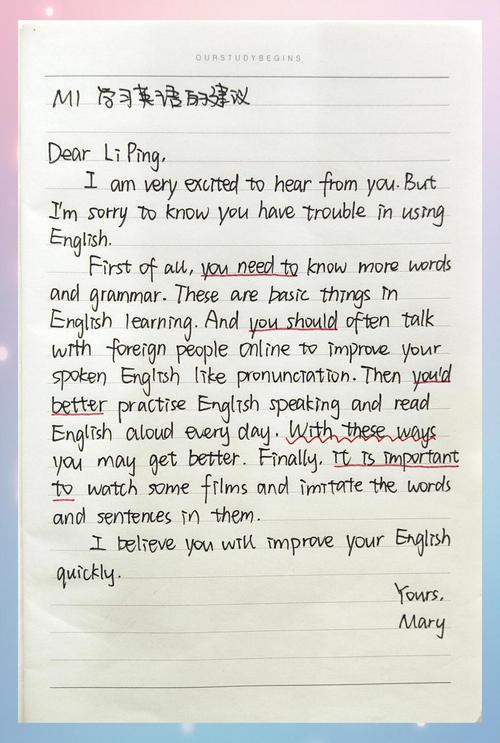 OURSTUDYBEGINS
M1 学习英语的建议
Dear Li Ping,
I am very excited to hear from you. But
I'm sorry to know you have trouble in using
English.
First of all, you need to know more words
and grammar. These are basic things in
English learning. And you should often talk
with foreign people online to improve your
spoken English like pronunciation. Then you'd
better practise English speaking and read
English aloud every day. With these ways
you may get better. Finally, it is important
to watch some films and imitate the words
and sentences in them.
I believe you will improve your English
quickly.
Yours,
Mary